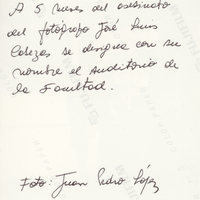 A 5 meses del asesinato
del fotógrafo José Luis
Cabezas se designa con su
nombre el Auditorio de
la Facultad.
Foto: Juan Pedro López